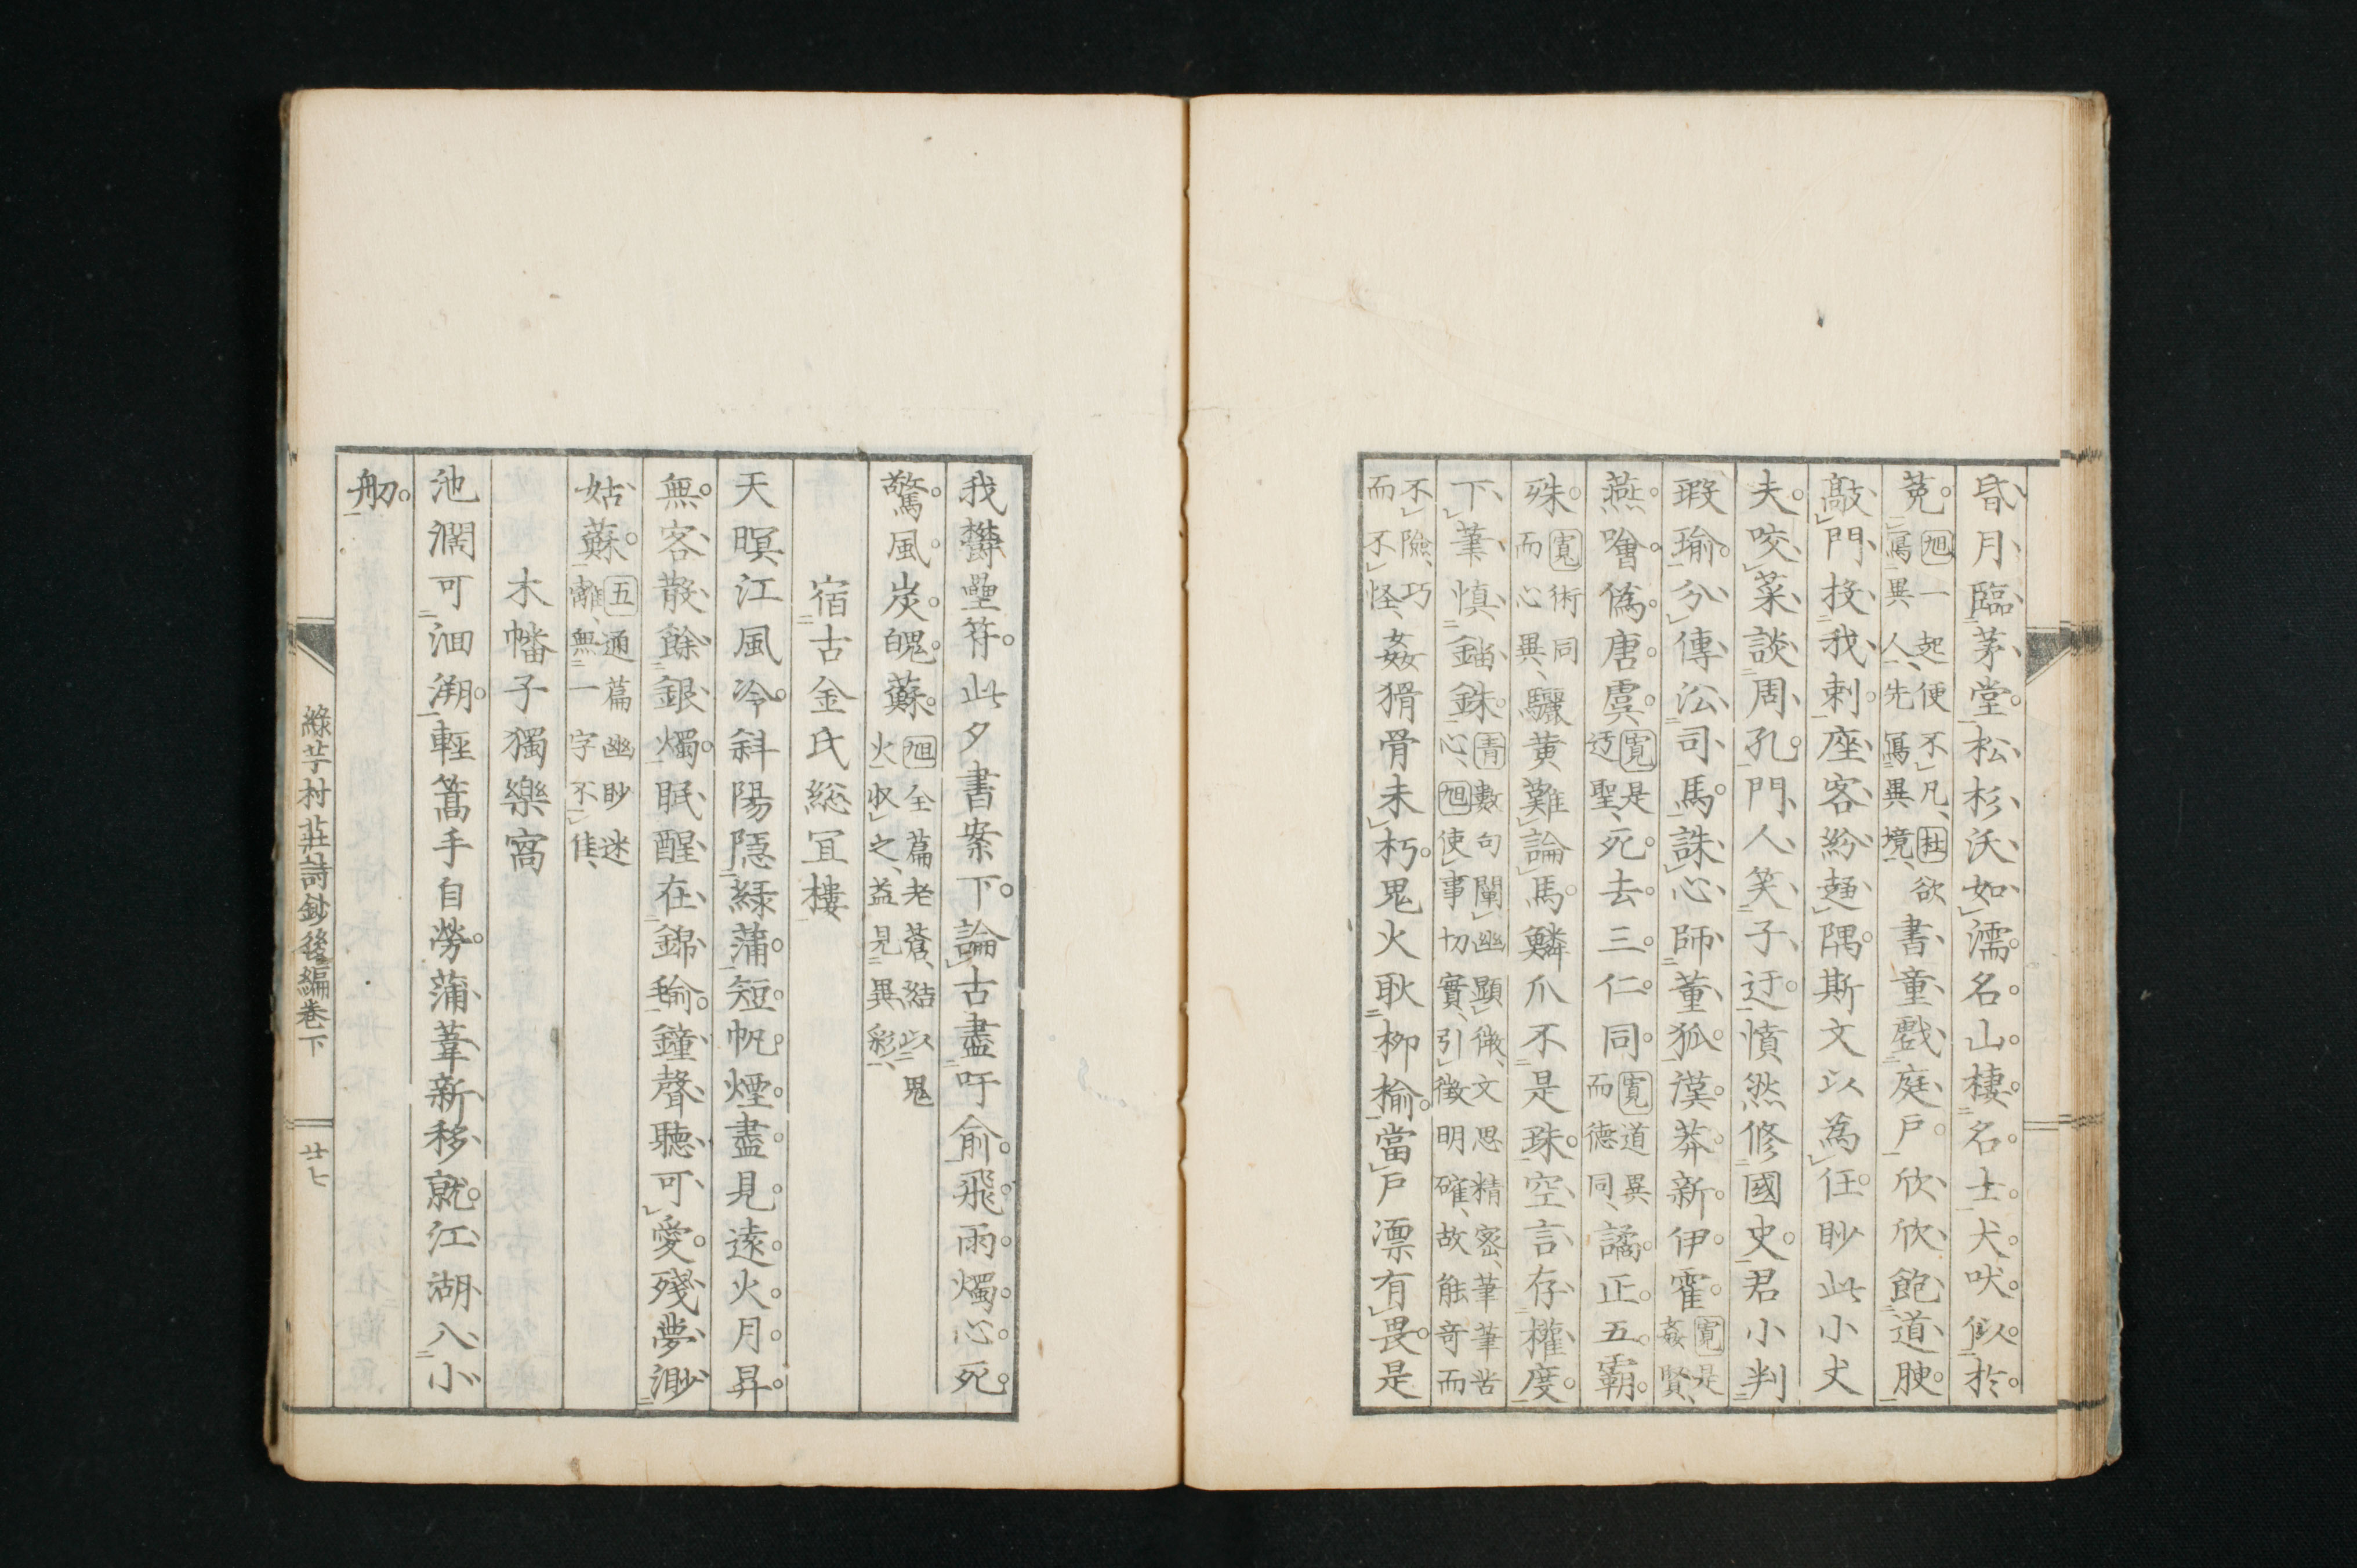 昏月臨茅堂松杉沃如濡名山棲名士犬吠似於
菟旭一起便不凡寫異人先寫異境杜欲書童戲庭戶欣欣飽道腴
敲門投我刺座客紛趨隅斯文以為任眇此小丈
夫咬菜談周孔門人笑子迂憤然修國史君小判
瑕瑜分傳沿司馬誅心師董狐漢莽新伊霍寬是姦賢
燕噲偽唐虞寬是迃聖死去三仁同寬道異而德同譎正五霸
殊寬術同而心異驪黃難論馬鱗爪不是珠空言存權度
下筆慎錙銖青數句闡幽顯微文思精密筆筆苦心旭使事切實引徵明確故能奇而
不險巧而不怪姦猾骨未朽鬼火耿柳楡當戶漂有畏是
我欎壘符此夕書案下論古盡吁俞飛雨燭心死
驚風炭魄蘇旭全篇老蒼結以鬼火收之益見異彩
宿古金氏総宜樓
天暝江風冷斜陽隱綠蒲短帆煙盡見遠火月昇
無客散餘銀燭眠醒在錦毹鐘聲聽可愛殘夢渺
姑蘇五通篇幽眇迷離無一字不佳
木幡子獨樂窩
池濶可洄溯輕篙手自勞蒲葦新移就江湖入小
舠
綠芋村莊詩鈔後編卷下
廿七